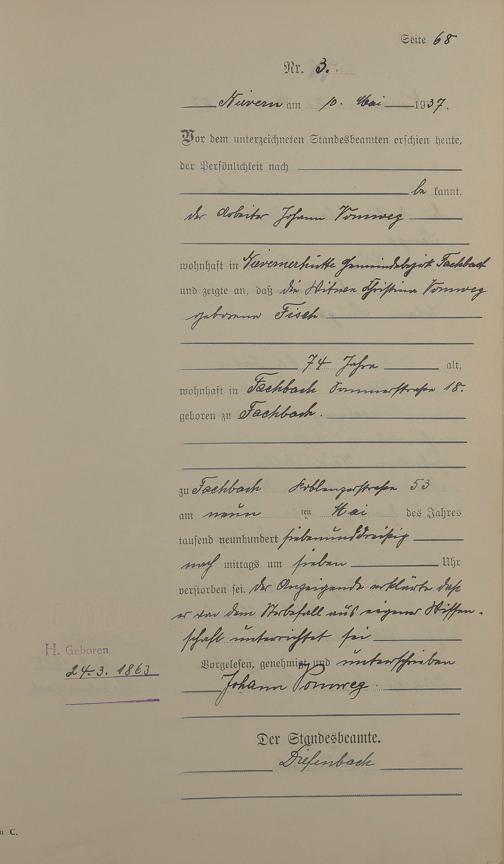 Seite 68
Nr. 3.
Nievern am 10. Mai 1937.
Vor dem unterzeichneten Standesbeamten erschien heute,
der Persönlichkeit nach
be kannt.
der Arbeiter Johann Vomweg
wohnhaft in Nievernerhütte Gemeindebezirk Fachbach
und zeigte an, daß die Witwe Christina Vomweg
geborene Fisch
74 Jahre alt,
wohnhaft in Fachbach Sommerstraße 18.
geboren zu Fachbach.
zu Fachbach Koblenzerstraße 53
am neun ten Mai des Jahres
tausend neunhundert siebenunddreißig
nach mittags um sieben Uhr
verstorben sei. Der Anzeigende erklärte daß
er von dem Sterbefall aus eigener Wissen-
schaft unterrichtet sei
Vorgelesen, genehmigt und unterschrieben
H. Geboren
24.3.1863
Johann Vomweg.
Der Standesbeamte.
Diefenbach
C.